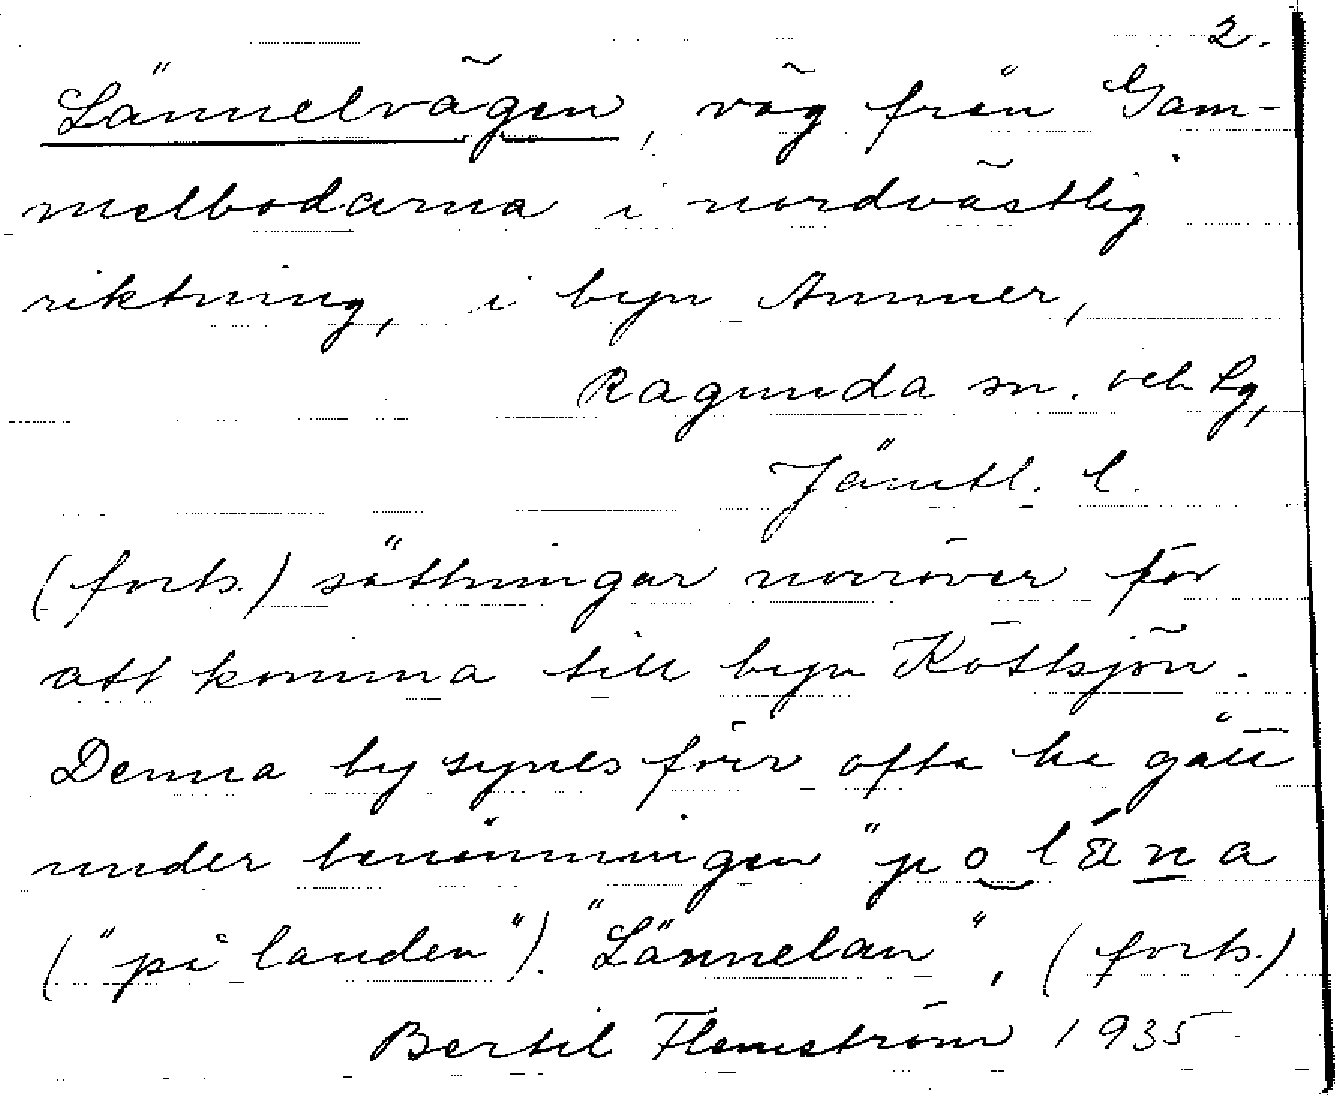 2.
Lännelvägen, väg från Gam-
melbodarna i nordvästlig
riktning, i byn Ammer,
Ragunda sn. och tg,
Jämtl. l.
(forts.) sättningar norröver för
att komma till byn Köttsjön.
Denna by synes förr ofta ha gått
under benämningen "po läna
("på landen"). "Lännelan", (forts.)
Bertil Flemström 1935